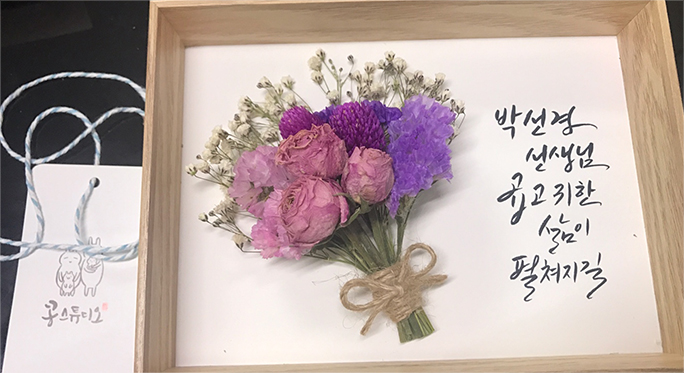 박선경
선생님
곱고 귀한
삶이
펼쳐지길
콩스튜디오